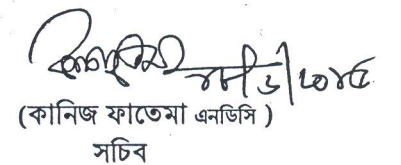 (কানিজ ফাতেমা এনডিসি )
সচিব